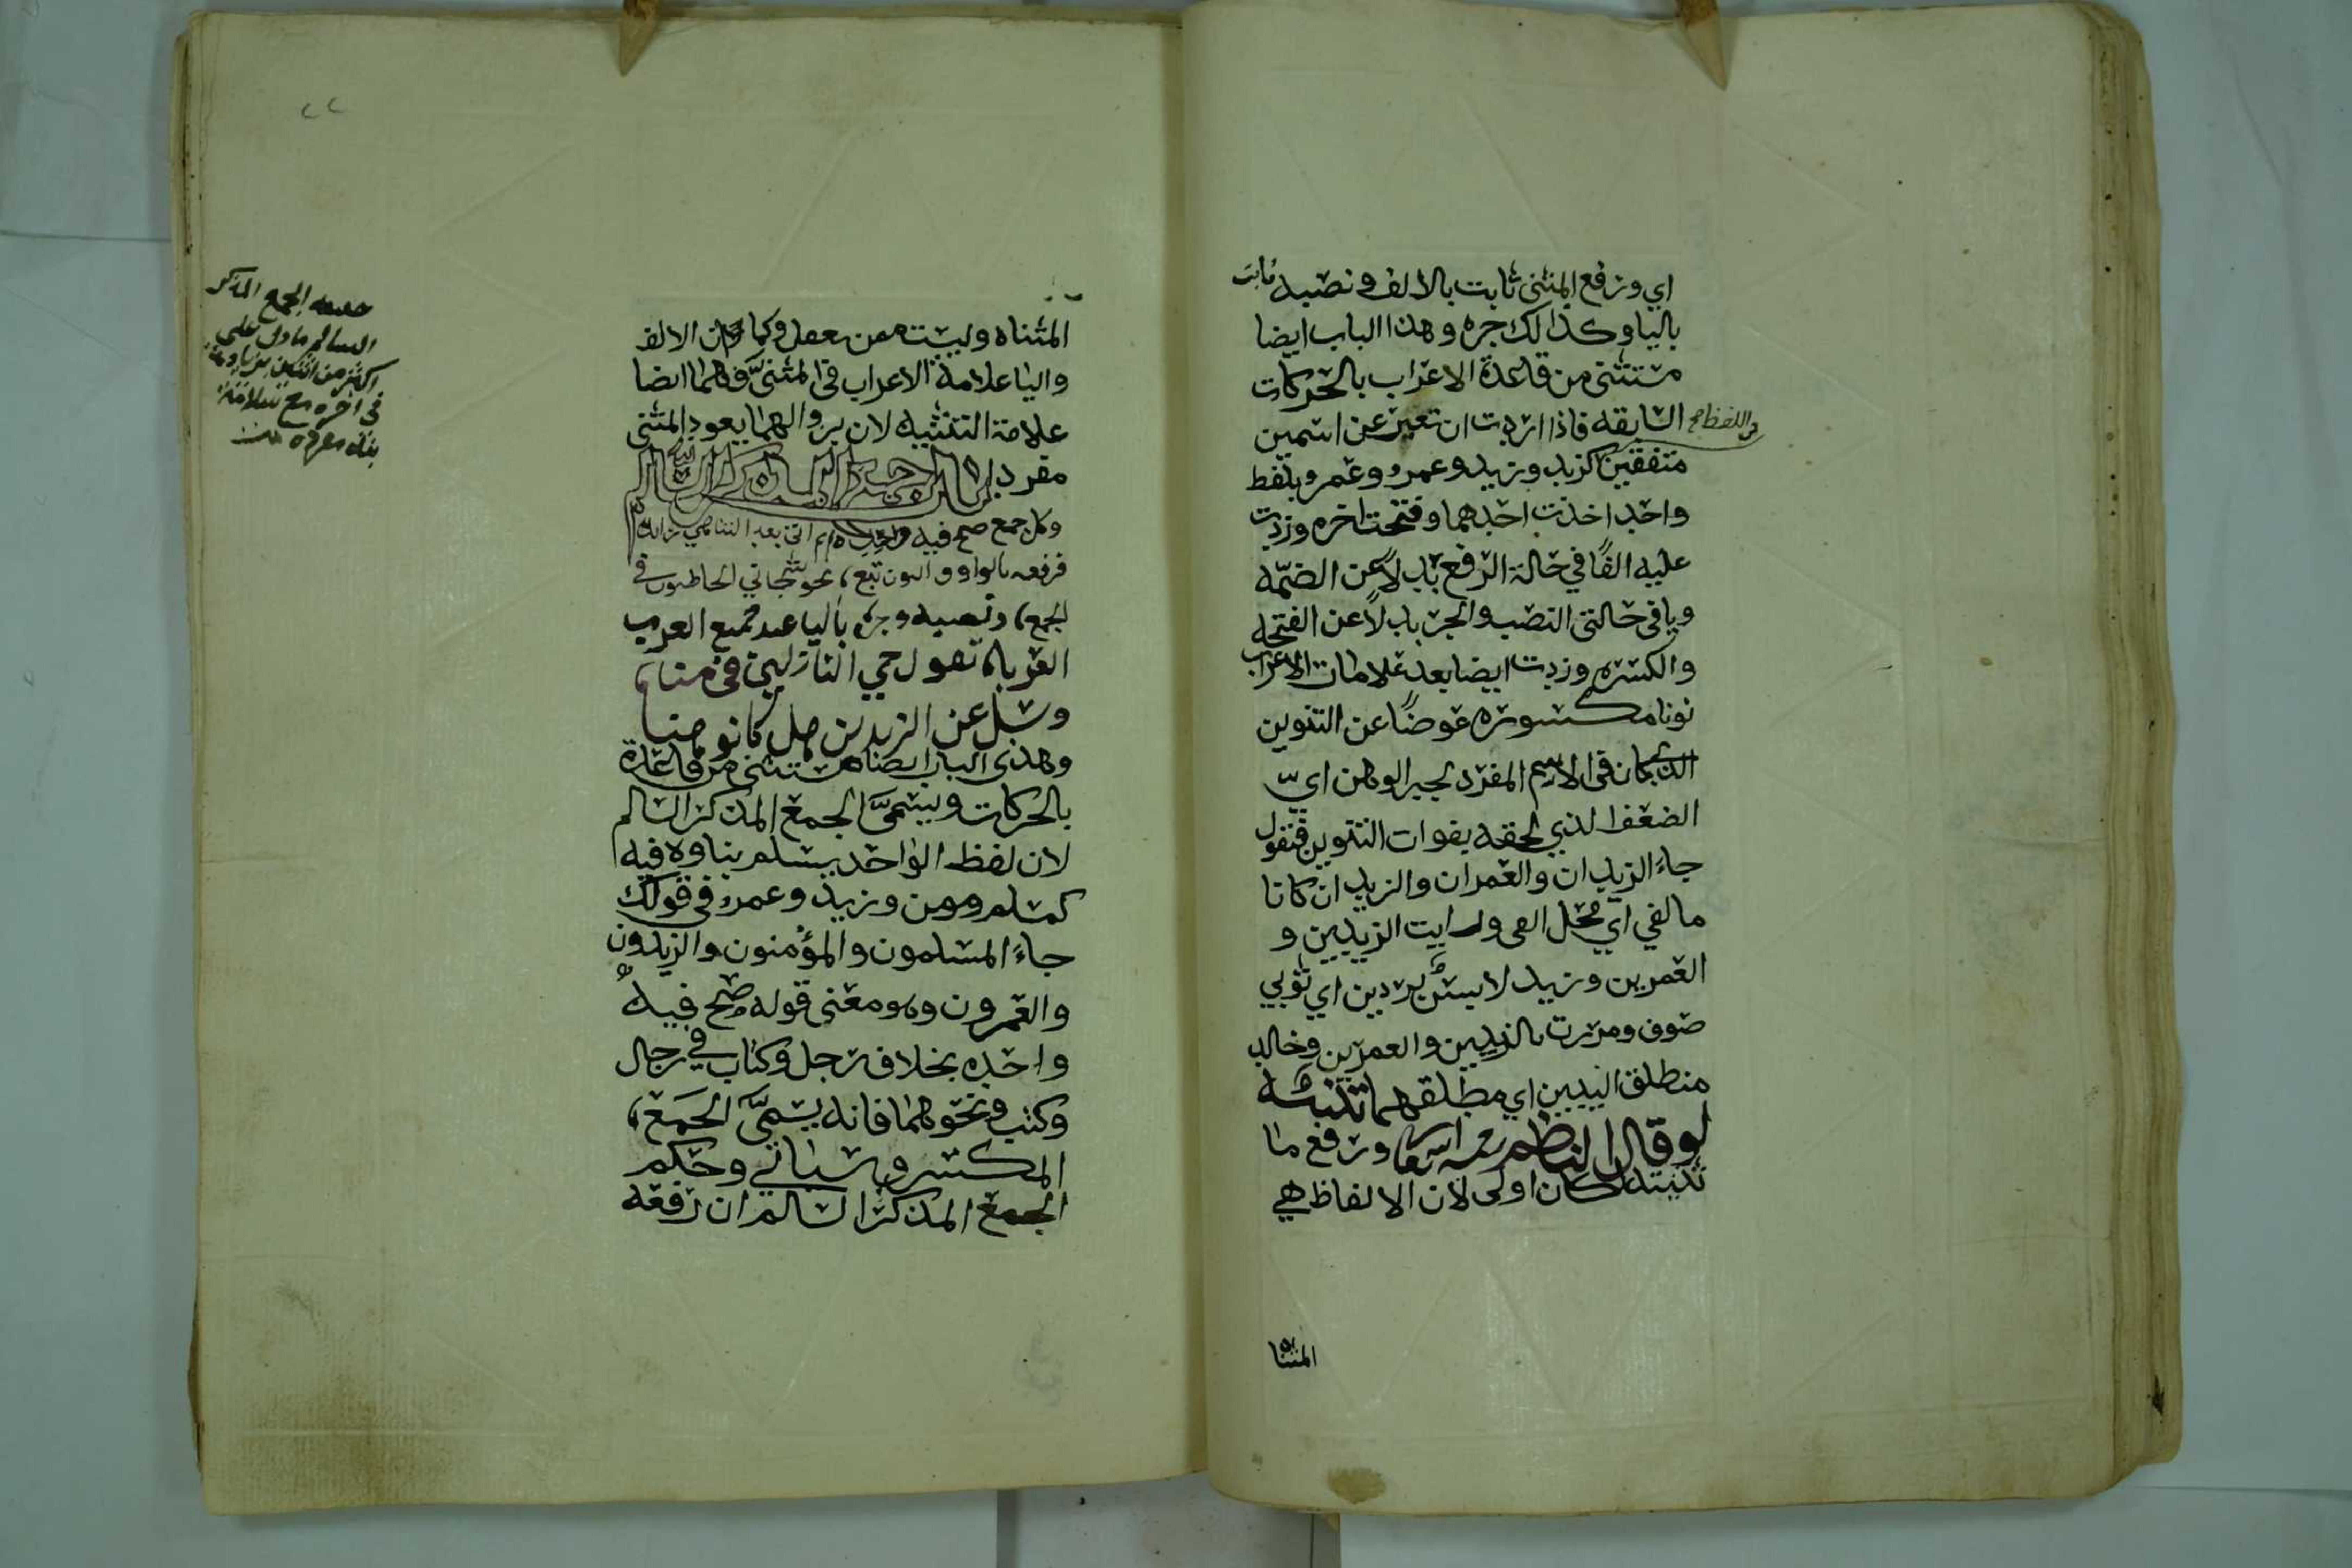 اي ورفع المثنى ثابت بالالف ونصبه ثابت
باليا وكذالك جره وهذا الباب ايضا
مستثنى من قاعدة الاعراب بالحركات
السابقه فاذا اردت ان تعبر عن اسمين
في اللفظ
متفقين كزيد وزيد وعمرو وعمرو بلفظ
واحد اخذت احدهما وفتحت اخره وزدت
عليه الفًا في حالة الرفع بدلاً عن الضمّه
ويا في حالتي النصب والجر بدلاً عن الفتحه
والكسره وزدت ايضا بعد علامات الاعراب
نونا مكسوره عوضًا عن التنوين
الذي كان في الاسم المفرد لجبر الوهن اي
الضعف الذي لحقه بفوات التنوين فتقول
جاءَ الزيدان والعمران والزيدان كانا
مالفي اي محل الفي ورايت الزيدين و
العمرين وزيد لابس بردين اي ثوبي
صوف ومررت بالزيدين والعمرين وخالد
منطلق اليدين اي مطلقهما تنبيه
لو قال الناظم ورفع ما
ثنيته لكان اولى لان الالفاظ هي
المثناه
٢٢
المثناه وليست ممن يعقل وكما ان الالف
واليا علامة الاعراب في المثنىّ فهما ايضا
علامة التثنيه لان بزوالهما يعود المثنى
مفردا باب جمع المذكر السالم
وكل جمع صح فيه واحده ثم اتى بعد التناهي زائده
فرفعه بالواو والنون تبع نحو شجاني الخاطبون في
الجمع ونصبه وجره باليا عند جميع العرب
العرباء تقول حي النازلين في منا
وسل عن الزيدين هل كانو هنا
وهذي الباب ايضا مستثنى من قاعدة
بالحركات ويسمىَّ الجمع المذكر السالم
لان لفظ الواحد يسلم بناوه فيه
كمسلم ومومن وزيد وعمرو في قولك
جاءَ المسلمون والمؤمنون والزيدون
والعمرون وهو معنى قوله صح فيه
واحده بخلاف رجل وكتاب في رجال
وكتب ونحوهما فانه يسمىَّ الجمع
المكسر وسياتي وحكم
الجمع المذكر السالم ان رفعه
الجمع المذكر
السالم ما دل على
اكثر من اثنين بزيادة
في اخره مع سلامة
بناء مفرده